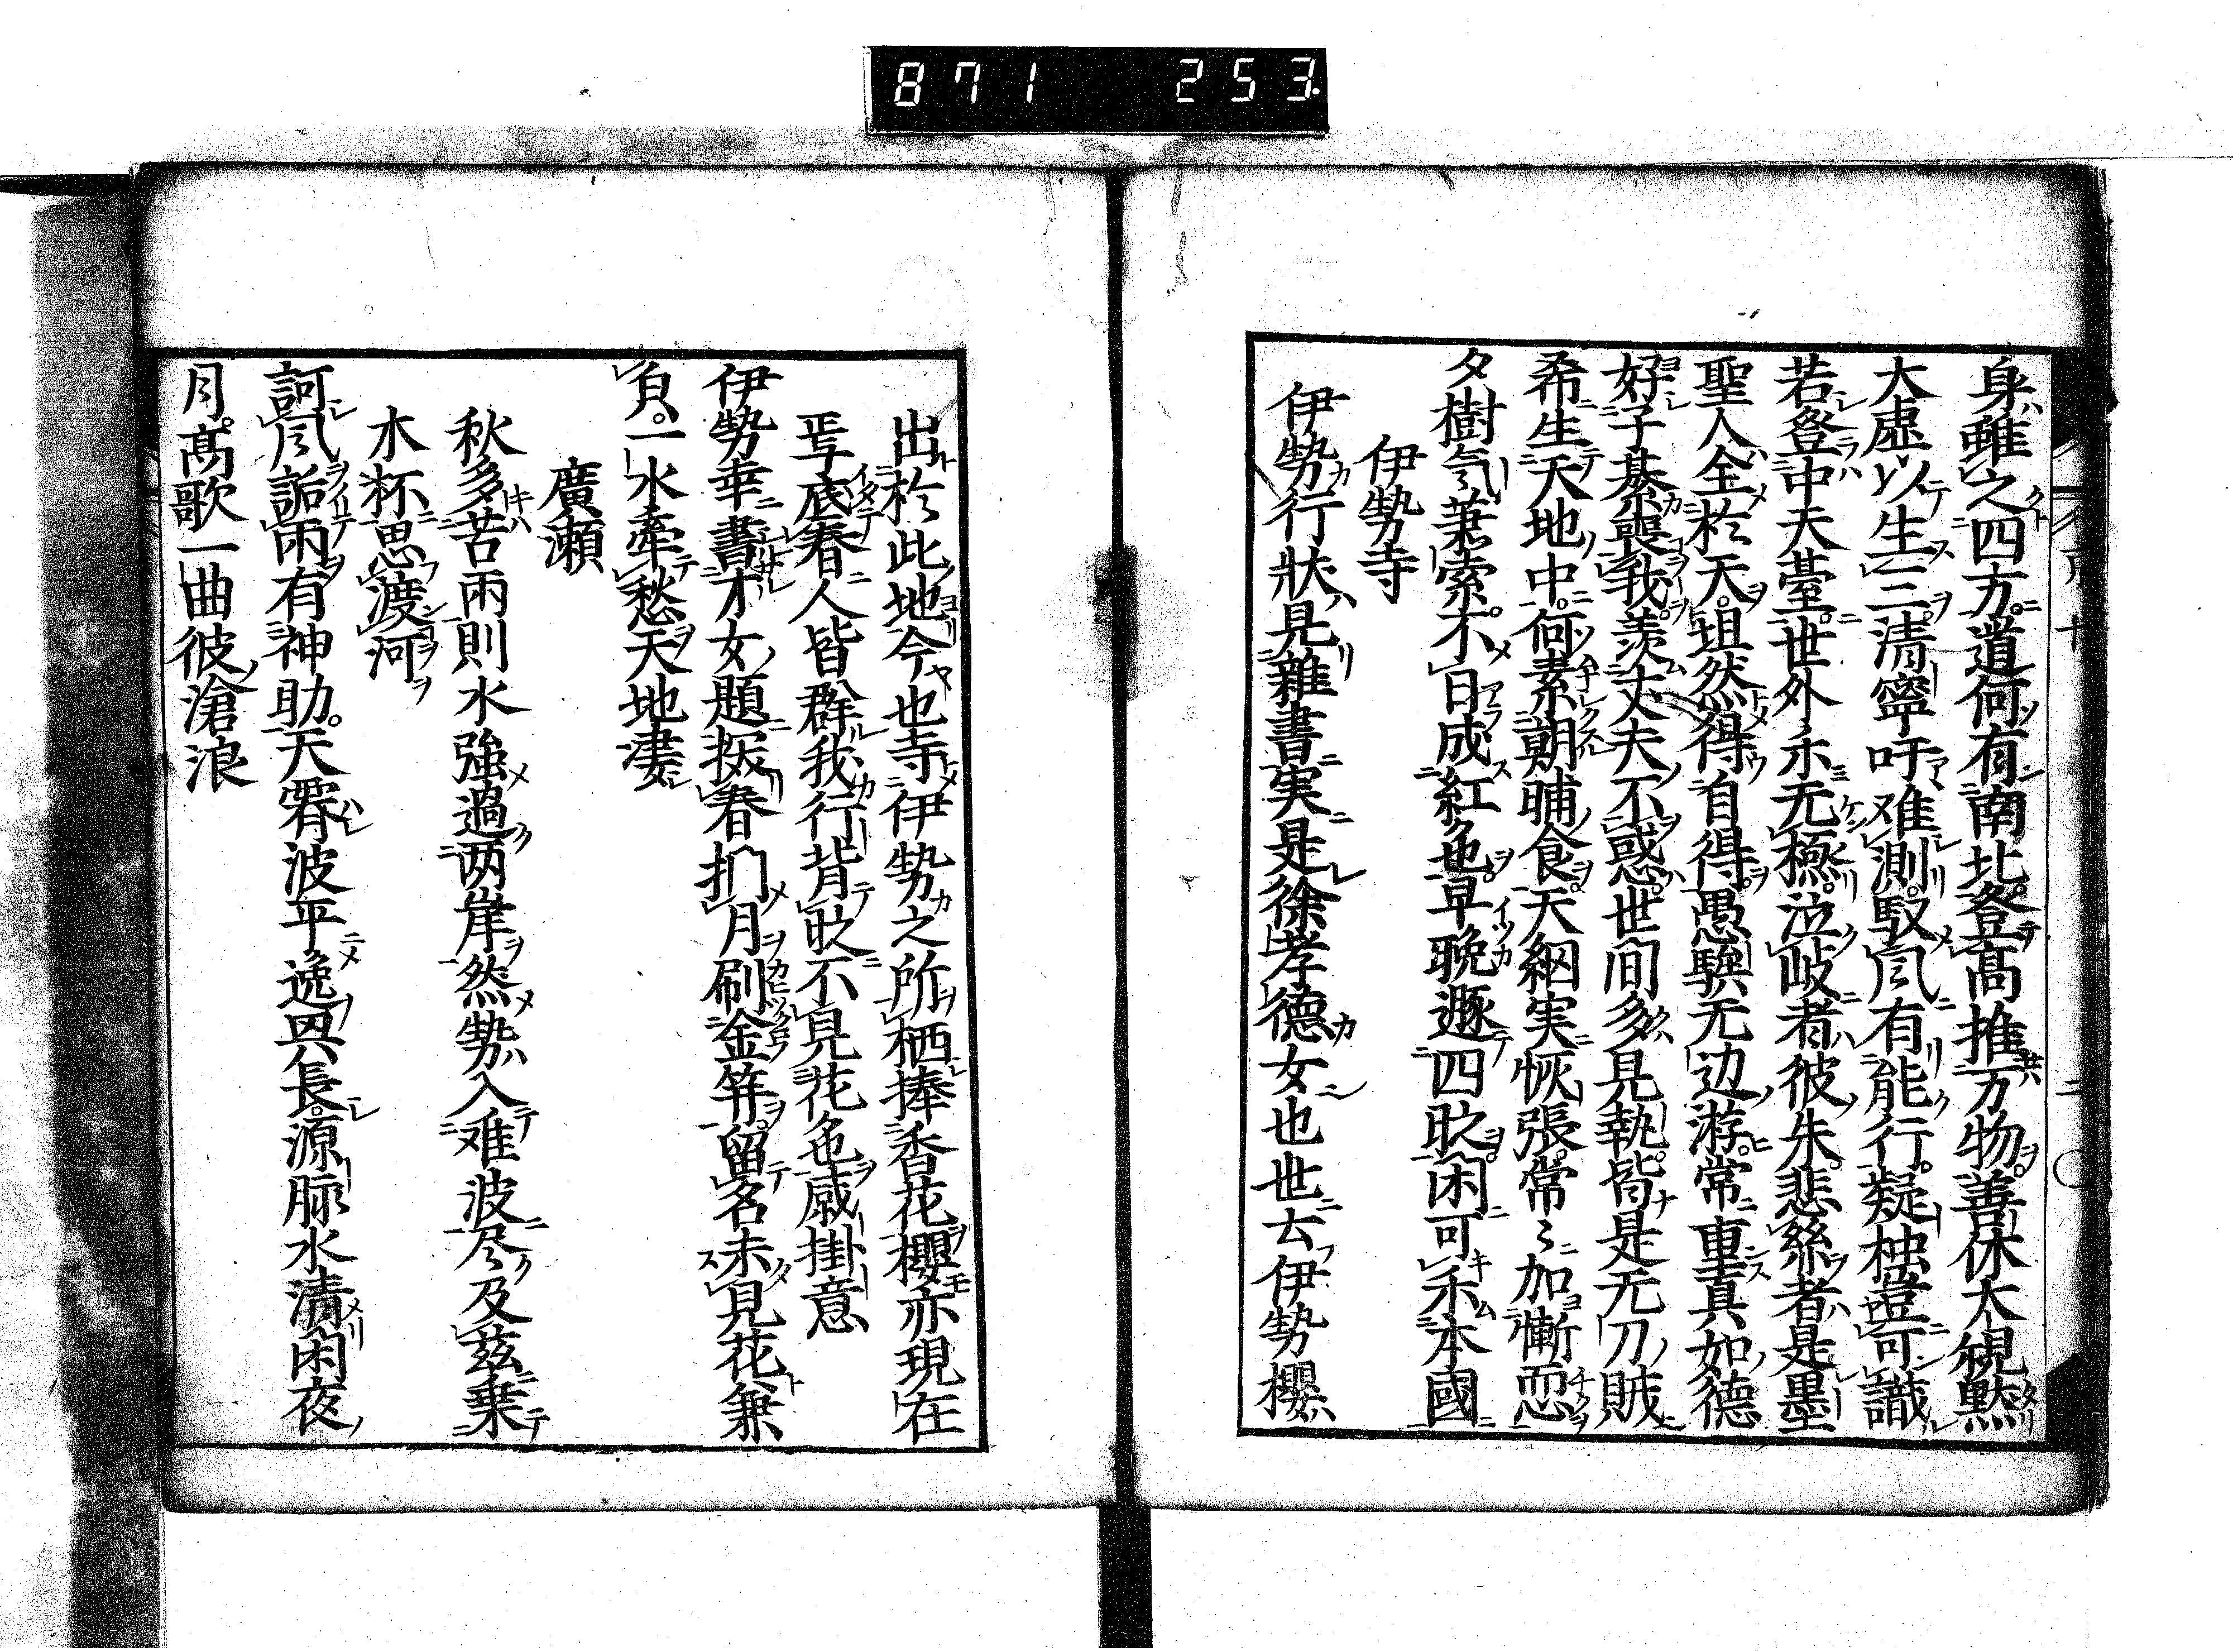 871 253
身雖之四方道何有南北登高推万物善休大槻黙
大虚以生三清寧吁难測馭風有能行疑独豈可識
若登中天薹世外示无極泣岐者彼朱悲絲者是墨
聖人全於天坦然得自得愚驥无边游常重真如德
好子綦喪我羨丈夫不惑世间多見執皆是无刀賊
希生天地中何素朝晡食天網実恢張常〻加慚恧
夕樹气萧索不日成紅色早晚遯四时闲可禾本國
伊㔟寺
伊㔟行狀見雜書実是徐孝德女也世云伊㔟櫻
出於此地今也寺伊㔟之所栖捧香花櫻亦現在
焉底春人皆群我行背时不見花色感掛意
伊㔟幸書才女題扳春捫月刷金笄留名未見花兼
負一水牽愁天地凄
廣瀬
秋多苦雨則水強過两岸然㔟入难波尽及茲乗
木杯思渡河
訶風詬雨有神助天霽波平逸興長源脉水清闲夜
月高歌一曲彼滄浪